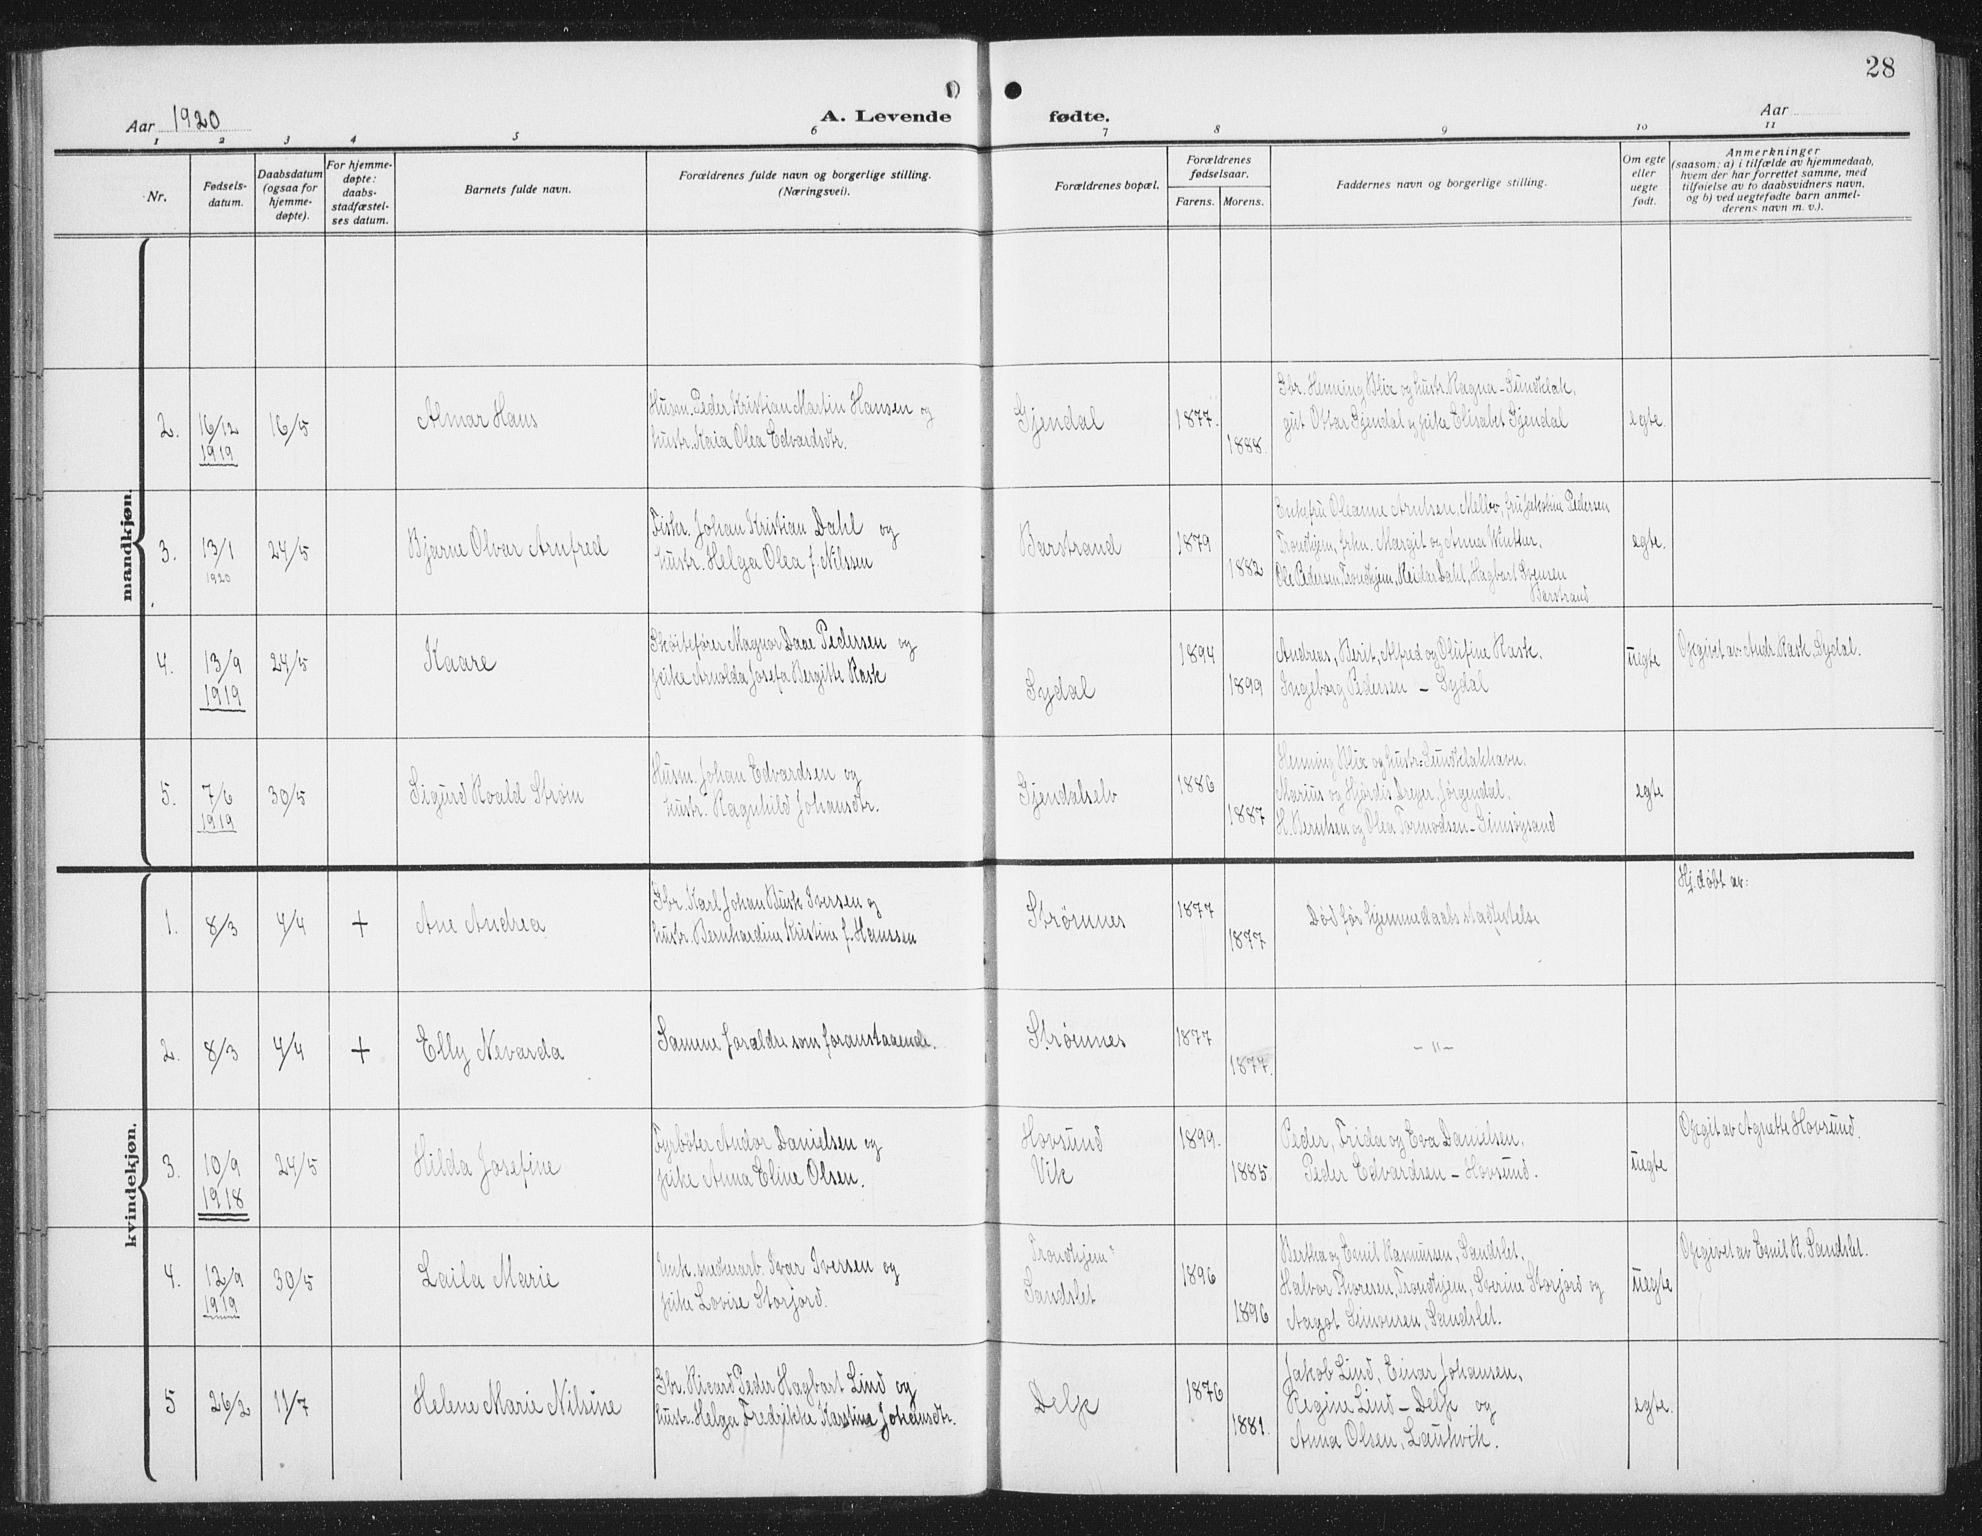 28
Aar 1920
A. Levende fødte.
Aar
1 2 3 4 5 6 7 8 9 10 11
Nr.
Fødsels-
datum.
Daabsdatum
(ogsaa for
hjemme-
døpte).
For hjemme-
døpte:
daabs-
stadfæstel-
ses datum.
Barnets fulde navn.
Forældrenes fulde navn og borgerlige stilling.
(Næringsvei).
Forældrenes bopæl.
Forældrenes
fødselsaar.
Farens. Morens.
Faddernes navn og borgerlige stilling.
Om egte
eller
uegte
født.
Anmerkninger
(saasom: a) i tilfælde av hjemmedaab,
hvem der har forrettet samme, med
tilføielse av to daabsvidners navn,
og b) ved uegtefødte barn anmel-
derens navn m. v.).
mandkjøn.
2.
16/12
1919
16/5
Almar Hans
Husm. Peder Kristian Martin Hansen og
hustr. Kaia Olea Edvardsdtr.
Gjendal
1877.
1888.
Gbr. Henning Blix og hustr. Ragna - Sundklak,
gut Ottar Gjendal og pike Elisabet Gjendal
egte.
3.
13/1
1920
24/5
Bjarne Olvar Arnfred
Fisker Johan Kristian Dahl og
hustr. Helga Olea f. Nilssen
Barstrand
1879
1882
Enkefru Oleanne Arntsen, Melbo, fru Jakobine Pedersen
Trondhjem, frkn. Margit og Anna Winther,
Ole Pedersen, Trondhjem, Reidar Dahl, Hagbart Svensen
Barstrand
egte.
4.
13/9
1919
24/5
Kaare
Skøitefører Magnor Daae Pedersen og
pike Arnolda Josefa Bergitte Rask
Sydal
1894
1899
Andreas, Berit, Alfred og Olufine Rask.
Ingeborg Pedersen - Sydal
uegte
Opgivet av Andr. Rask, Sydal.
5.
7/6
1919
30/5
Sigurd Roald Strøm
Husm. Johan Edvardsen og
hustr. Ragnhild Johansdtr.
Gjendalselv
1886
1887
Henning Blix og hustr. Sundklakhavn.
Marius og Hjørdis Dreyer, Jørgendal.
H. Berntsen og Olea Tormodsen - Gimsøysand
egte
kvindekjøn.
1.
8/3
4/4
+
Ane Andrea
Gbr. Karl Johan Busk Iversen og
hustr. Bernhardine Kristine f. Hanssen
Strømnes
1877
1877
Død før hjemmedaabsstadfestelse
Hj. døbt av:
2.
8/3
4/4
+
Elly Nevarda
Samme forældre som foranstaaende.
Strømnes
1877
1877.
- " -
3.
10/9
1918
24/5
Hilda Josefine
Fyrbøter Andor Danielsen og
pike Anna Eline Olsen.
Hovsund
Vik
1899.
1885.
Peder, Frida og Eva Danielsen.
Peder Edvardsen - Hovsund.
uegte
Opgit av Agnette Hovsund.
4.
12/9
1919
30/5
Laila Marie
Ivar Iversen og
pike Lovise Storjord.
Trondhjem
Sandslet
1896
1896
Bertha og Emil Rasmussen, Sandslet,
Halvor Thoresen, Trondhjem, Sverine Storjord og
Aagot Simonsen, Sandslet.
uegte
Opgivet av Emil R. Sandslet.
5
26/2
11/7
Helene Marie Nilsine
Gbr. Ricard Peder Hagbart Lind og
hustr. Helga Fredrikke Karstine Johansdtr.
Delp
1876
1881.
Jakob Lind, Einar Johansen,
Regine Lind - Delp og
Anna Olsen, Laukvik.
egte.